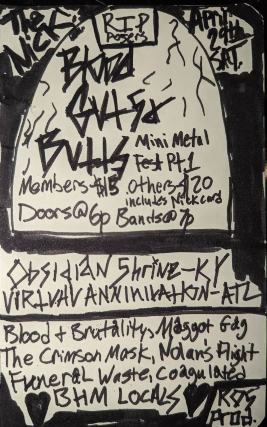 The Nick
R.I.P
posers
April
29th
SAT.
Blood
Guts &
Butts
Mini Metal
Fest Pt.1
Members $15 others $20
includes Nick card
Doors@6p Bands@7p
Obsidian Shrine-KY
Virtual Annihilation-ATL
Blood + Brutality, Maggot Gag
The Crimson Mask, Nolan's Flight
Funeral Waste, Coagulated
BHM LOCALS
Prod.